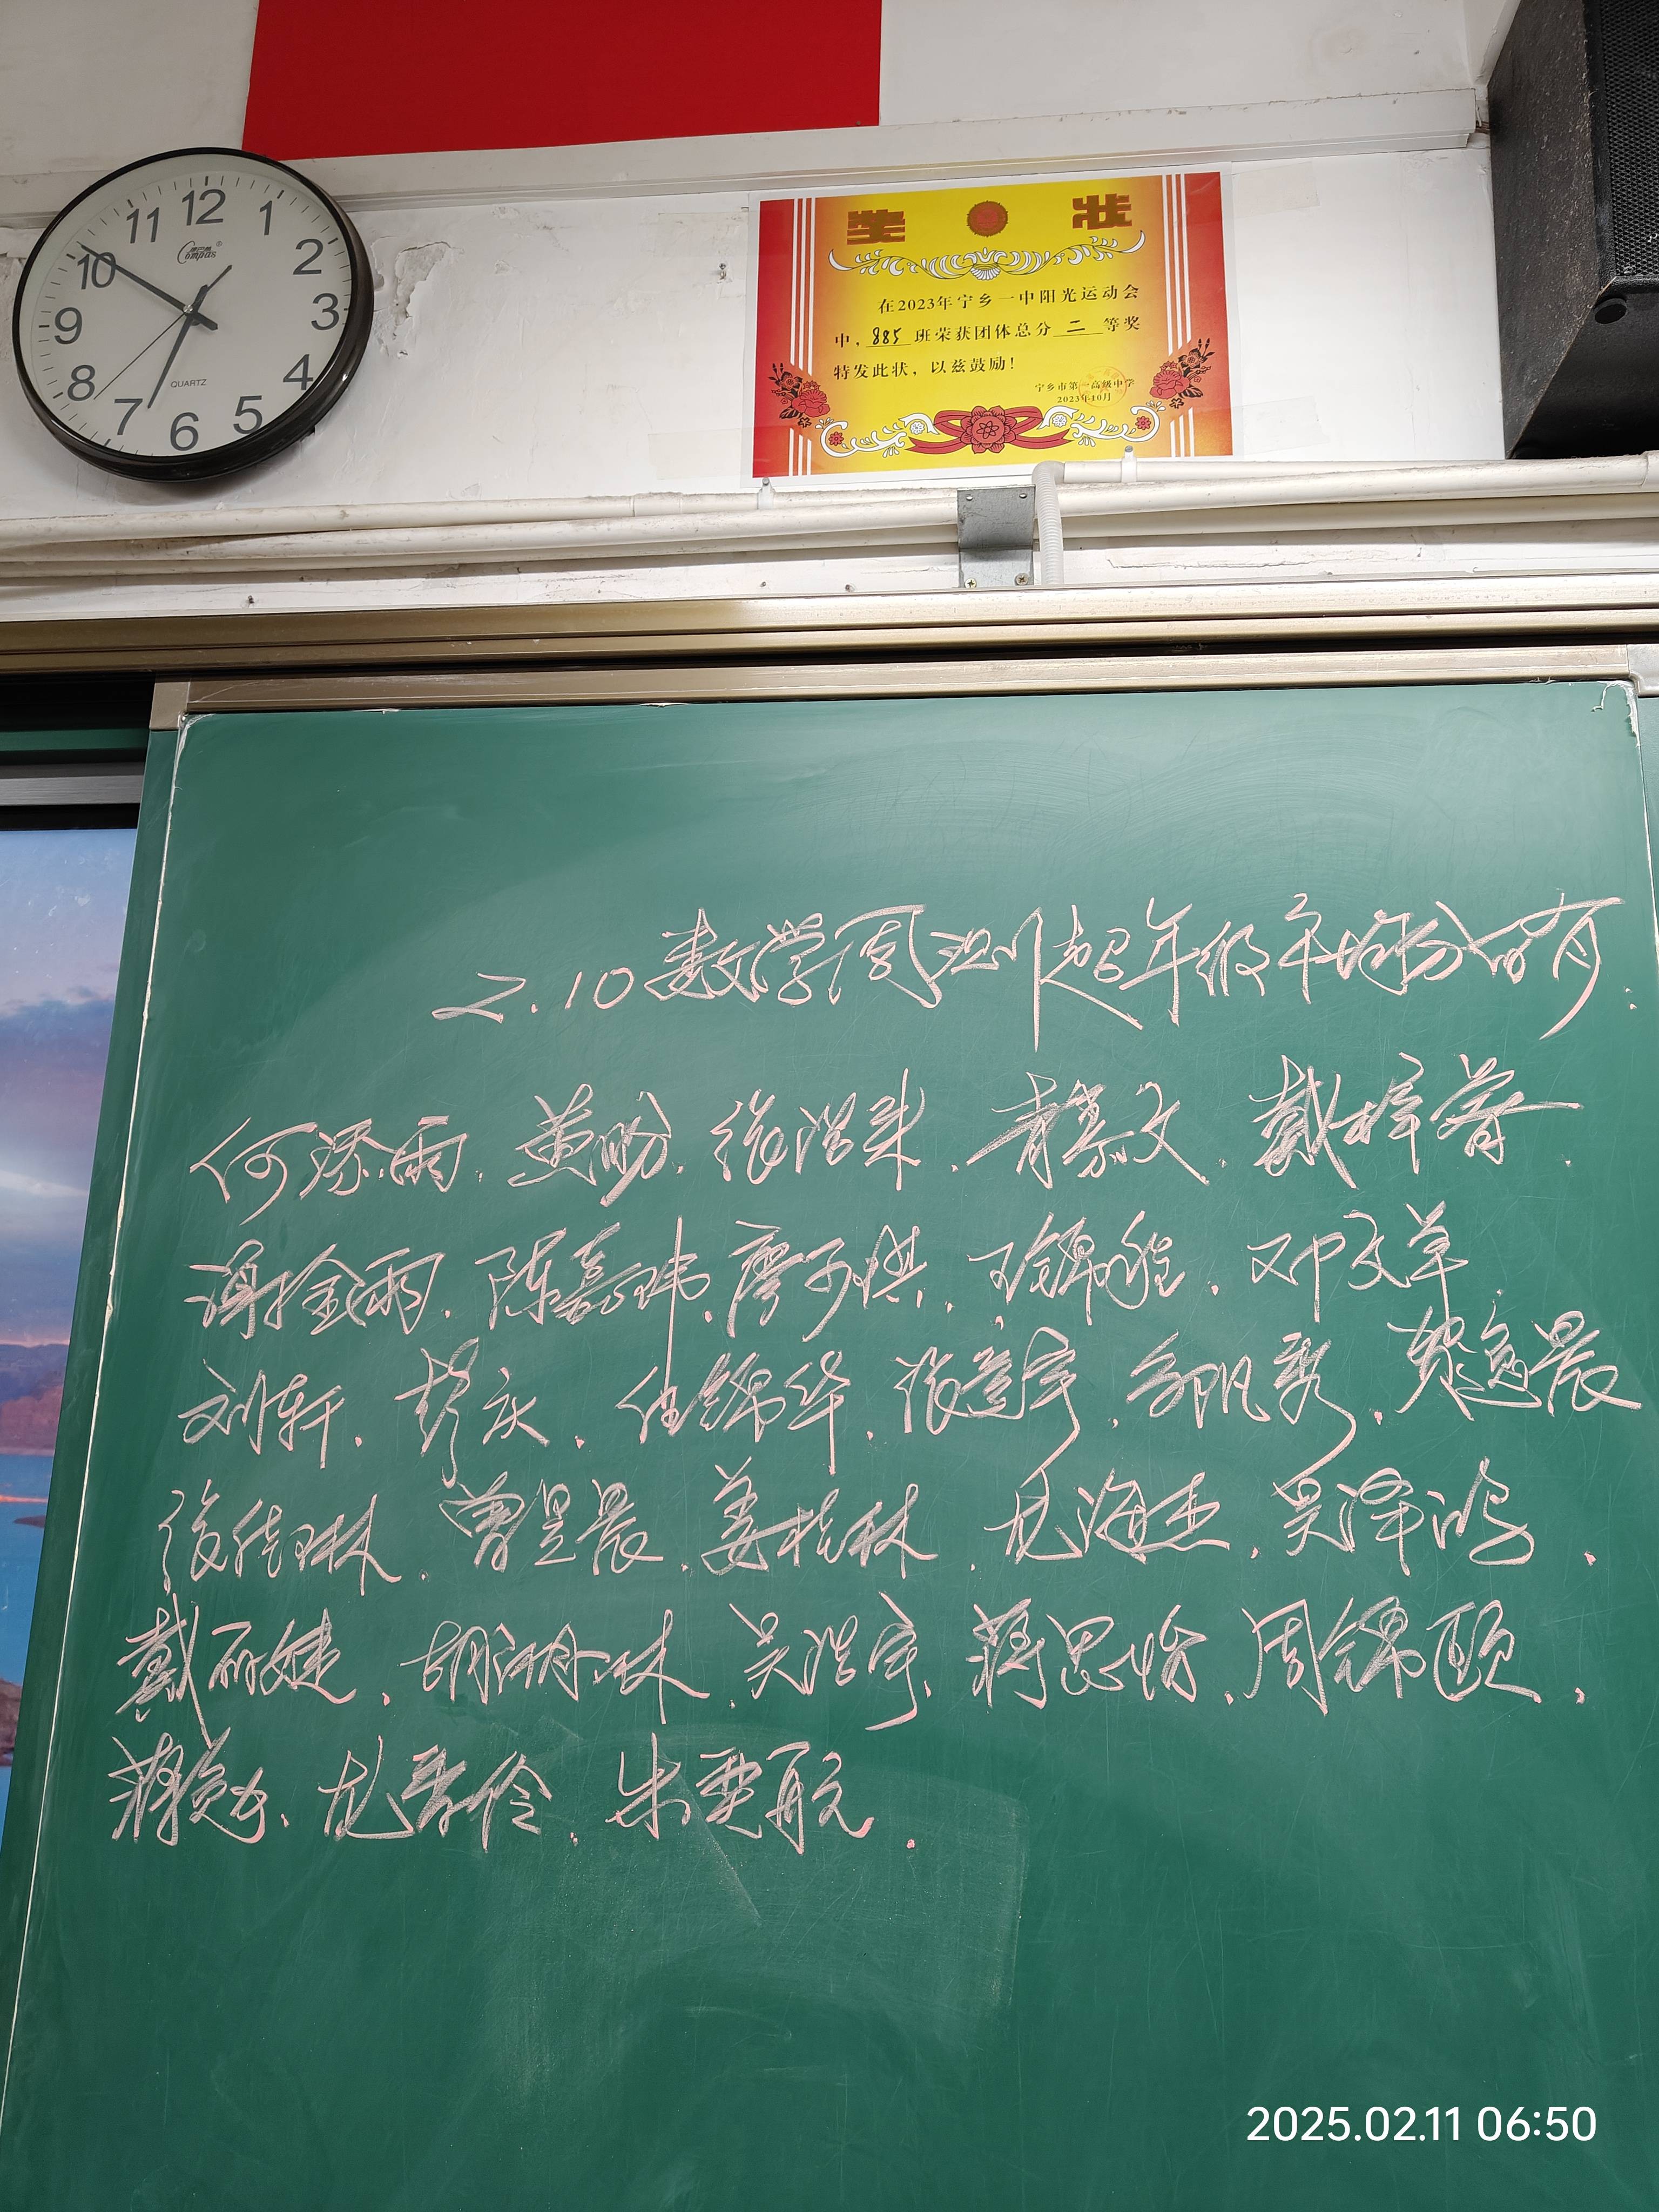 12 1 2 3 4 5 6 7 8 9 10 11
Compas
QUARTZ
奖 状
在2023年宁乡一中阳光运动会
中，885班荣获团体总分二等奖
特发此状，以兹鼓励！
宁乡市第一高级中学
2023年10月
2.10数学周测超年级平均分的有：
何添雨、黄盼、徐浩来、肖慕文、戴梓睿、
谭金雨、陈嘉玮、廖子琪、王锦程、邓文羊、
刘轩、彭庆、任锦华、张道宇、邹凡秀、黎逸晨
张继琳、曾星晨、姜桂林、龙海杰、吴泽鸿、
戴丽婕、胡湘琳、吴浩宇、蒋思怡、周锦颐、
蒋逸、龙雪伶、朱奕航、
2025.02.11 06:50